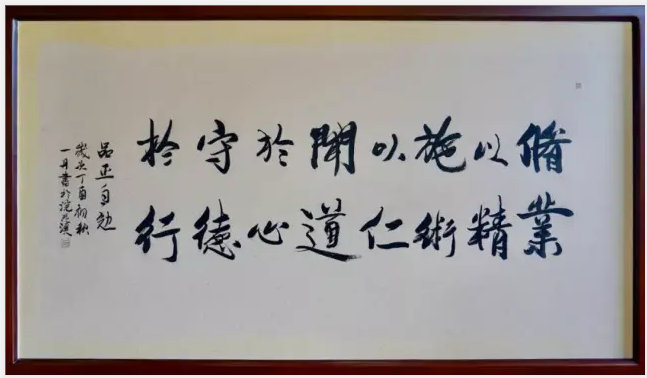 脩業
以精
施術
以仁
聞道
於心
守德
於行
品正自勉
歲次丁酉初秋
一丹書於浣花溪